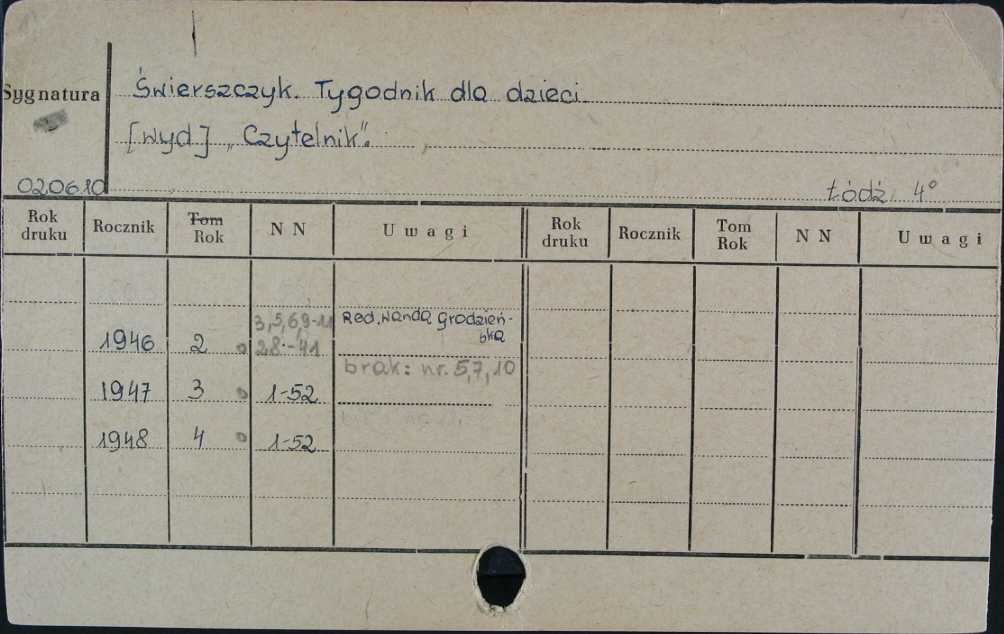 Sygnatura Świerszczyk. Tygodnik dla dzieci.
[wyd] „Czytelnik".
020610 Łódź 4°
Rok druku Rocznik Tom Rok N N Uwagi Rok druku Rocznik Tom Rok N N Uwagi
1946 2 3,5,6,9-11 28-41 Red. Wanda Grodzieńska
brak: nr. 5,7,10
1947 3 1-52
1948 4 1-52